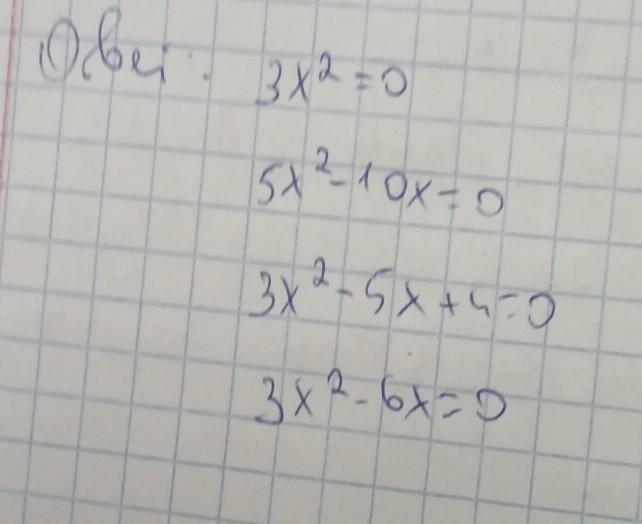 Ответ: 3x² = 0
5x² - 10x = 0
3x² - 5x + 4 = 0
3x² - 6x = 0